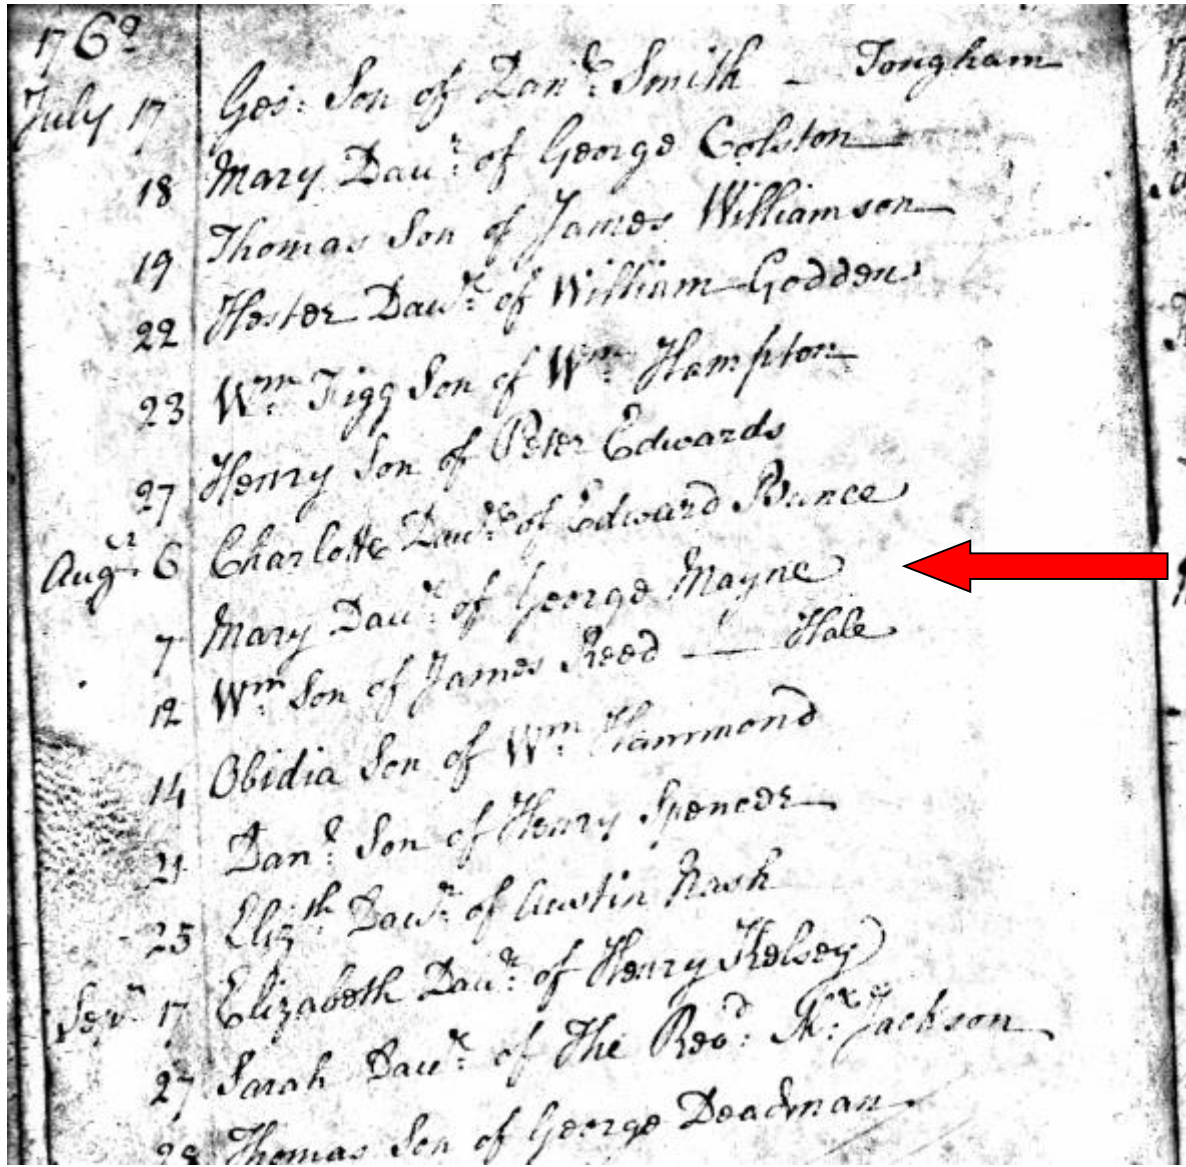 1769
July 17 Geo: Son of Danl: Smith — Tongham
18 Mary Daur: of George Colston
19 Thomas Son of James Williamson
22 Hester Daur: of William Godden
23 Wm: Figg Son of Wm: Hampton
27 Henry Son of Peter Edwards
Augst 6 Charlotte Daur: of Edward Bunce
7 Mary Daur: of George Mayne
12 Wm: Son of James Reed — Hale
14 Obidia Son of Wm: Hammond
21 Danl: Son of Henry Spencer
25 Elizth: Daur: of Austin Nash
Sepr 17 Elizabeth Daur: of Henry Kelsey
27 Sarah Daur: of The Revd: Mr: Jackson
28 Thomas Son of George Deadman